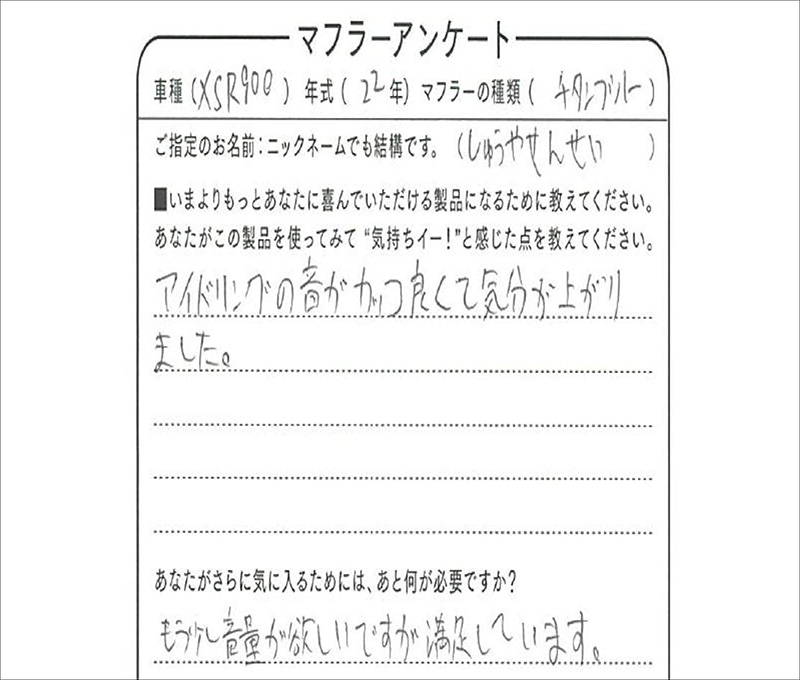 マフラーアンケート
車種(XSR900) 年式(22年) マフラーの種類(チタンブルー)
ご指定のお名前:ニックネームでも結構です。(しゅうやせんせい)
■いまよりもっとあなたに喜んでいただける製品になるために教えてください。
あなたがこの製品を使ってみて“気持ちイー!”と感じた点を教えてください。
アイドリングの音がカッコ良くて気分が上がり
ました。
あなたがさらに気に入るためには、あと何が必要ですか?
もう少し音量が欲しいですが満足しています。